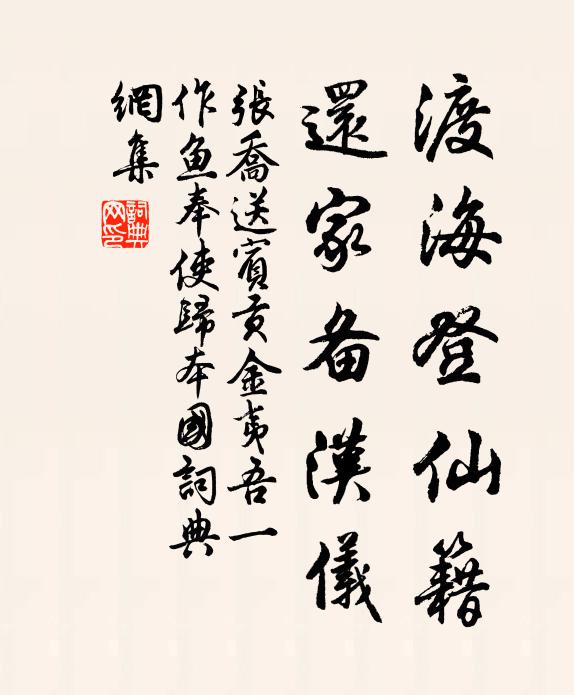 渡海登仙籍
還家备漢儀
張喬送賓贡金夷吾一
作魚奉使歸本國詞典
網集
詞典
网印